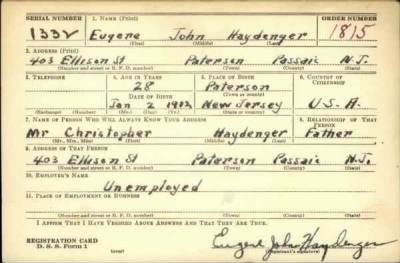 SERIAL NUMBER 1. NAME (Print) ORDER NUMBER
1332 Eugene John Haydenger 1815
(First) (Middle) (Last)
2. ADDRESS (Print)
403 Ellison St Paterson Passaic N.J.
(Number and street or R. F. D. number) (Town) (County) (State)
3. TELEPHONE 4. AGE IN YEARS 5. PLACE OF BIRTH 6. COUNTRY OF CITIZENSHIP
28 Paterson
DATE OF BIRTH (Town or county)
Jan 2 1912 New Jersey U.S.A.
(Exchange) (Number) (Mo.) (Day) (Yr.) (State or country)
7. NAME OF PERSON WHO WILL ALWAYS KNOW YOUR ADDRESS 8. RELATIONSHIP OF THAT PERSON
Mr Christopher Haydenger Father
(Mr., Mrs., Miss) (First) (Middle) (Last)
9. ADDRESS OF THAT PERSON
403 Ellison St Paterson Passaic N.J.
(Number and street or R. F. D. number) (Town) (County) (State)
10. EMPLOYER'S NAME
Unemployed
11. PLACE OF EMPLOYMENT OR BUSINESS
(Number and street or R. F. D. number) (Town) (County) (State)
I AFFIRM THAT I HAVE VERIFIED ABOVE ANSWERS AND THAT THEY ARE TRUE.
REGISTRATION CARD
D. S. S. Form 1 (over) Eugene John Haydenger
(Registrant's signature)